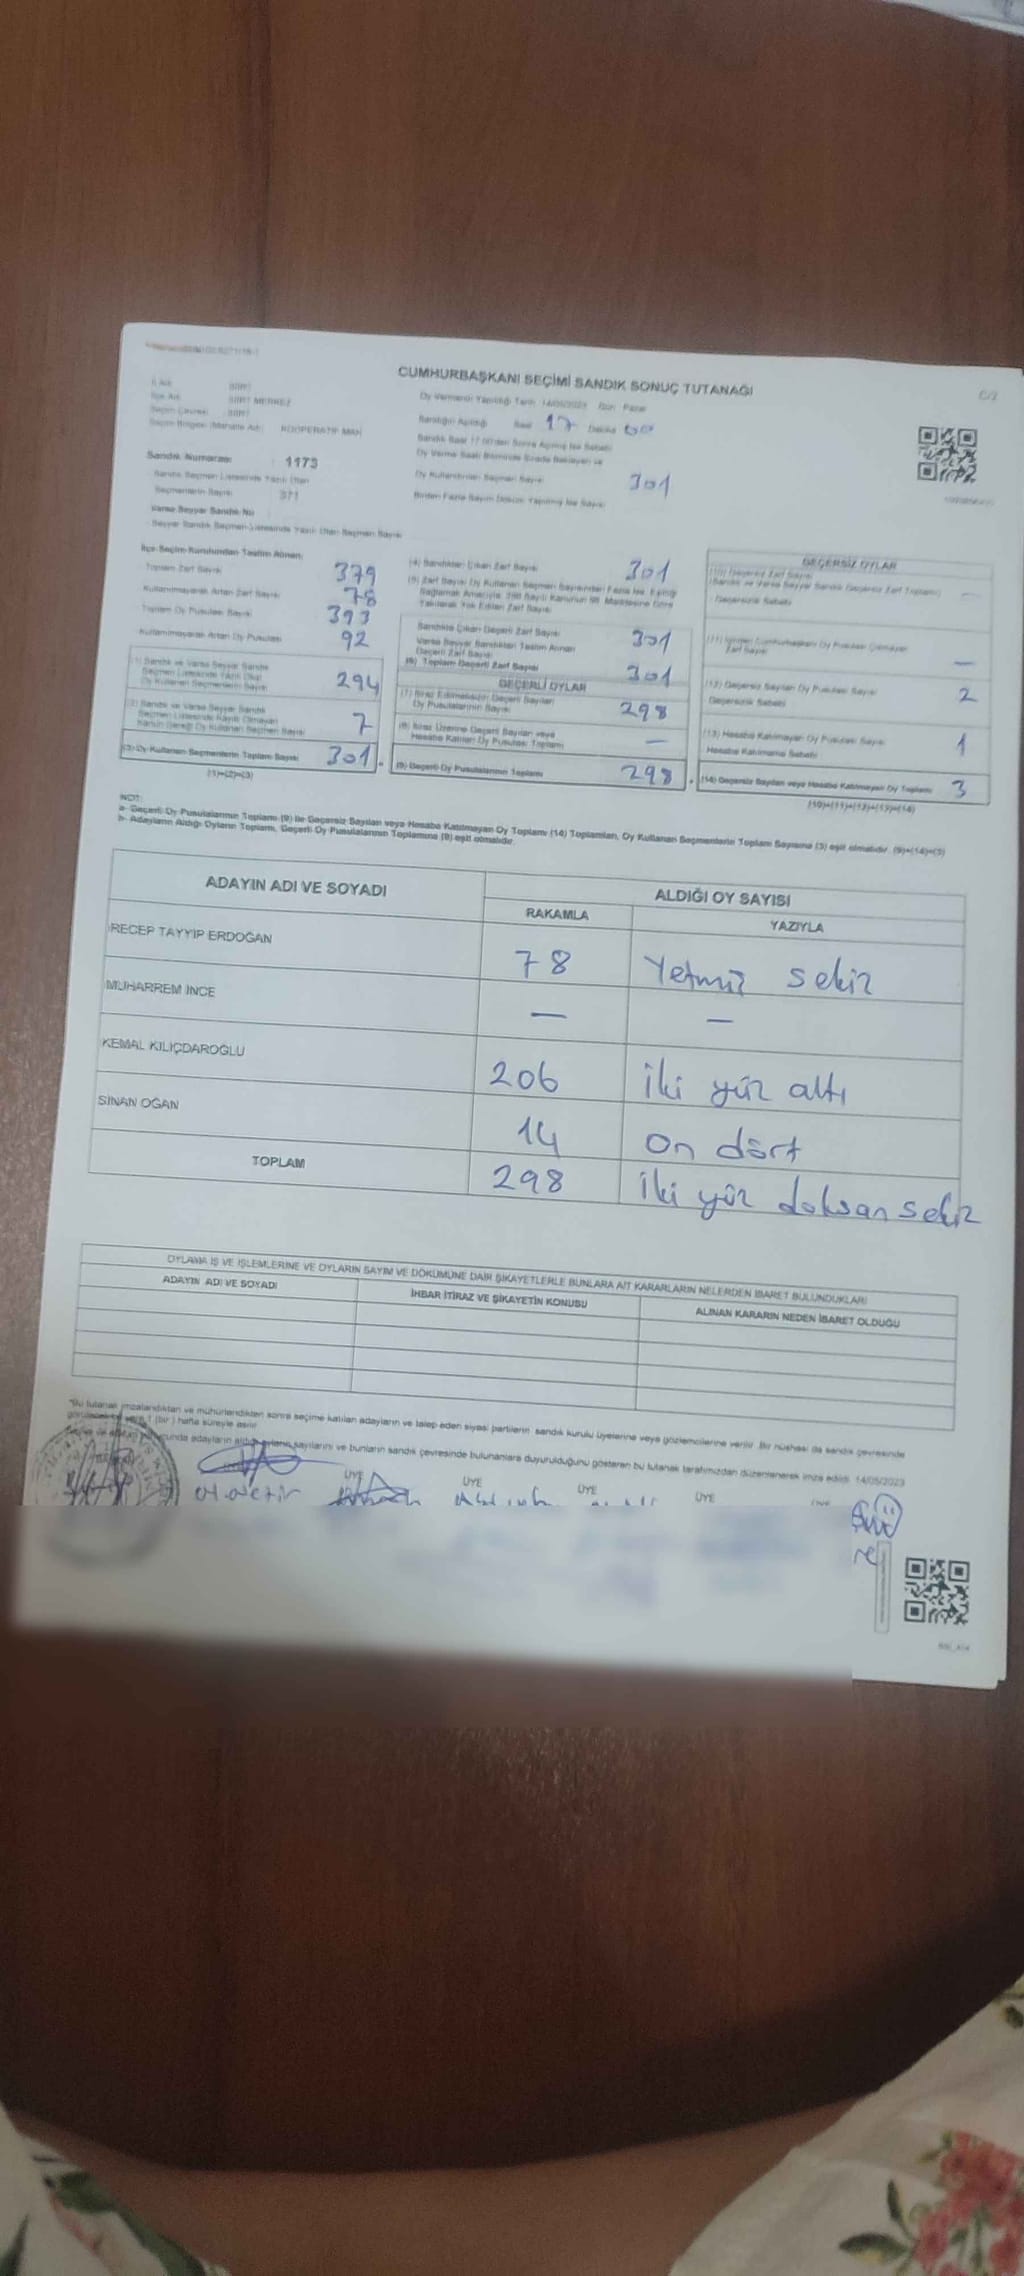 CUMHURBAŞKANI SEÇİMİ SANDIK SONUÇ TUTANAĞI
C/2
İl Adı : SİİRT
İlçe Adı : SİİRT MERKEZ
Seçim Çevresi : SİİRT
Seçim Bölgesi (Mahalle Adı) : KOOPERATİF MAH.
Sandık Numarası : 1173
Sandık Seçmen Listesinde Yazılı Olan
Seçmenlerin Sayısı : 371
Varsa Seyyar Sandık No
Seyyar Sandık Seçmen Listesinde Yazılı Olan Seçmen Sayısı
Oy Vermenin Yapıldığı Tarih 14/05/2023 Gün Pazar
Sandığın Açıldığı Saat 17 Dakika 00
Oy Kullandırılan Seçmen Sayısı 301
İlçe Seçim Kurulundan Teslim Alınan;
Toplam Zarf Sayısı 379
Kullanılmayarak Artan Zarf Sayısı 78
Toplam Oy Pusulası Sayısı 393
Kullanılmayarak Artan Oy Pusulası 92
(1) Sandık ve Varsa Seyyar Sandık
Seçmen Listesinde Yazılı Olup
Oy Kullanan Seçmenlerin Sayısı 294
(2) Sandık ve Varsa Seyyar Sandık
Seçmen Listesinde Kayıtlı Olmayan
Kanun Gereği Oy Kullanan Seçmen Sayısı 7
(3) Oy Kullanan Seçmenlerin Toplam Sayısı 301
(1)+(2)=(3)
(4) Sandıktan Çıkan Zarf Sayısı 301
Sandıkta Çıkan Geçerli Zarf Sayısı 301
Varsa Seyyar Sandıktan Teslim Alınan
Geçerli Zarf Sayısı
(6) Toplam Geçerli Zarf Sayısı 301
GEÇERLİ OYLAR
(7) İtiraz Edilmeksizin Geçerli Sayılan
Oy Pusulalarının Sayısı 298
(8) İtiraz Üzerine Geçerli Sayılan veya
Hesaba Katılan Oy Pusulası Toplamı —
(9) Geçerli Oy Pusulalarının Toplamı 298
GEÇERSİZ OYLAR
(10) Geçersiz Zarf Sayısı
(Sandık ve Varsa Seyyar Sandık Geçersiz Zarf Toplamı) —
Geçersizlik Sebebi
(11) İçinden Cumhurbaşkanı Oy Pusulası Çıkmayan
Zarf Sayısı —
(12) Geçersiz Sayılan Oy Pusulası Sayısı 2
Geçersizlik Sebebi
(13) Hesaba Katılmayan Oy Pusulası Sayısı 1
Hesaba Katılmama Sebebi
(14) Geçersiz Sayılan veya Hesaba Katılmayan Oy Toplamı 3
(10)+(11)+(12)+(13)=(14)
NOT:
a- Geçerli Oy Pusulalarının Toplamı (9) ile Geçersiz Sayılan veya Hesaba Katılmayan Oy Toplamı (14) Toplamları, Oy Kullanan Seçmenlerin Toplam Sayısına (3) eşit olmalıdır. (9)+(14)=(3)
b- Adayların Aldığı Oyların Toplamı, Geçerli Oy Pusulalarının Toplamına (9) eşit olmalıdır.
ADAYIN ADI VE SOYADI
ALDIĞI OY SAYISI
RAKAMLA YAZIYLA
RECEP TAYYİP ERDOĞAN 78 Yetmiş sekiz
MUHARREM İNCE — —
KEMAL KILIÇDAROĞLU 206 İki yüz altı
SİNAN OĞAN 14 on dört
TOPLAM 298 İki yüz doksan sekiz
OYLAMA İŞ VE İŞLEMLERİNE VE OYLARIN SAYIM VE DÖKÜMÜNE DAİR ŞİKAYETLERLE BUNLARA AİT KARARLARIN NELERDEN İBARET BULUNDUKLARI
ADAYIN ADI VE SOYADI
İHBAR İTİRAZ VE ŞİKAYETİN KONUSU
ALINAN KARARIN NEDEN İBARET OLDUĞU
*Bu tutanak imzalandıktan ve mühürlendikten sonra seçime katılan adayların ve talep eden siyasi partilerin sandık kurulu üyelerine veya gözlemcilerine verilir. Bir nüshası da sandık çevresinde
görülecek bir yere 1 (bir) hafta süreyle asılır.
adayların aldığı oyların sayılarını ve bunların sandık çevresinde bulunanlara duyurulduğunu gösteren bu tutanak tarafımızdan düzenlenerek imza edildi. 14/05/2023
ÜYE ÜYE ÜYE ÜYE